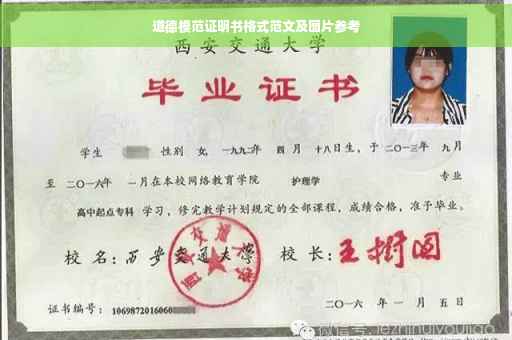 道德模范证明书格式范文及图片参考
西安交通大学
毕业证书
学生 性别 女, 一九九二年 四 月 十八日生, 于二〇一三年 九月
至 二〇一六年 一月在本校网络教育学院 护理学 专业
高中起点专科 学习, 修完教学计划规定的全部课程, 成绩合格, 准予毕业。
校 名: 西安交通大学 校 长: 王树国
西安交通大学
证书编号: 1069872016060
二〇一六 年 一 月 五 日
微信号: lezhihuiyoujiao